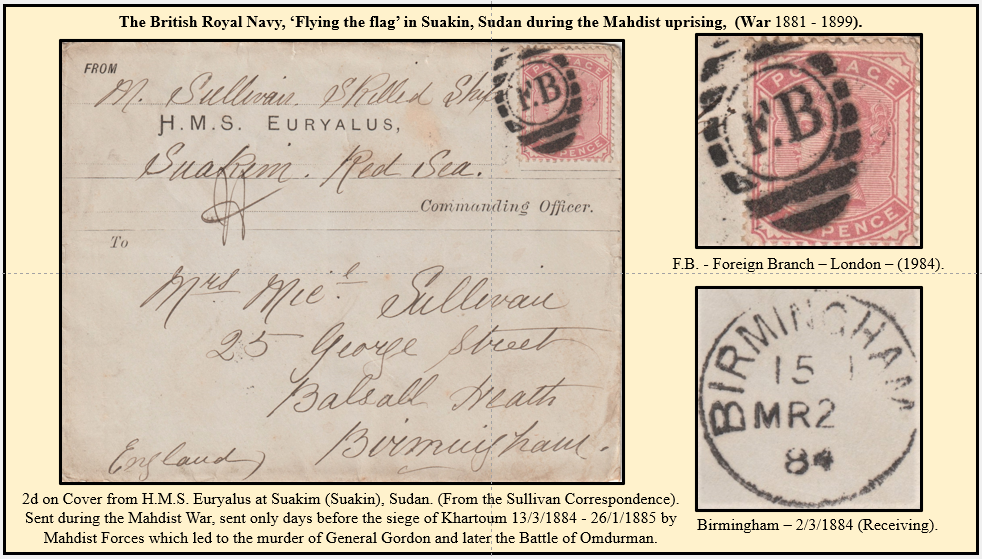 The British Royal Navy, ‘Flying the flag’ in Suakin, Sudan during the Mahdist uprising, (War 1881 - 1899).
FROM
M. Sullivan. Skilled
H.M.S. EURYALUS,
Suakim. Red Sea.
Commanding Officer.
To
Mrs Micl Sullivan
25 George Street
Balsall Heath
Birmingham.
England)
F.B
PENCE
2d on Cover from H.M.S. Euryalus at Suakim (Suakin), Sudan. (From the Sullivan Correspondence).
Sent during the Mahdist War, sent only days before the siege of Khartoum 13/3/1884 - 26/1/1885 by
Mahdist Forces which led to the murder of General Gordon and later the Battle of Omdurman.
POSTAGE
F.B
PENCE
F.B. - Foreign Branch – London – (1984).
BIRMINGHAM
15
MR2
84
Birmingham – 2/3/1884 (Receiving).